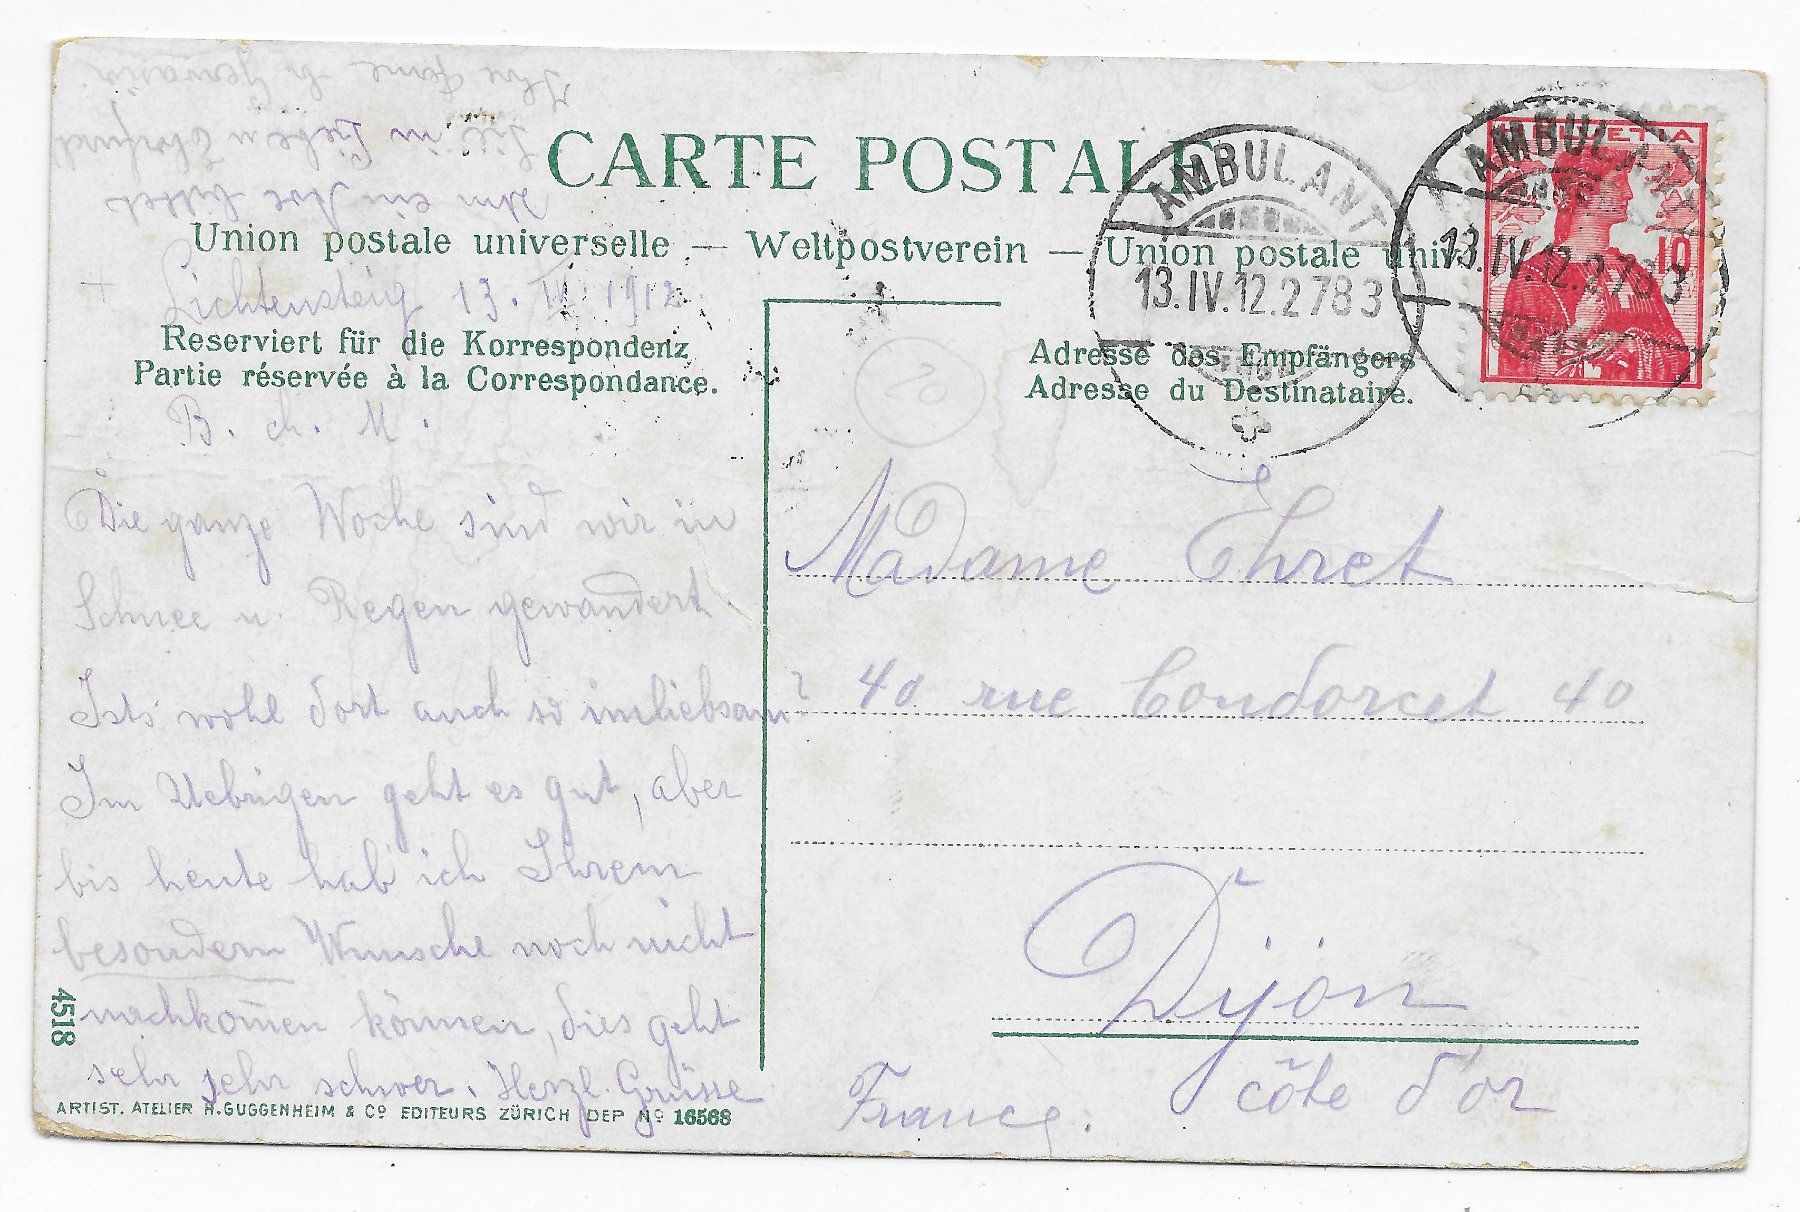 CARTE POSTALE
Union postale universelle — Weltpostverein — Union postale univ
Lichtensteig 13. IV. 1912
Reserviert für die Korrespondenz
Partie réservée à la Correspondance.
B. ch. M.
Die ganze Woche sind wir in
Schnee u. Regen gewandert
Ists wohl dort auch so unliebsam?
Im Uebrigen geht es gut, aber
bis heute hab' ich Ihrem
besondern Wunsche noch nicht
nachkom̄en können, dies geht
sehr sehr schwer. Herzl. Grüsse
Um ein Ave bittet
in
Ihre
4518
ARTIST. ATELIER H. GUGGENHEIM & Co EDITEURS ZÜRICH DEP No 16568
AMBULANT
13.IV.12.2783
AMBULANT
13.IV.12.2783
HELVETIA
10
Adresse des Empfängers
Adresse du Destinataire.
Madame Ehret
40 rue Condorcet 40
Dijon
côte d'or
France.